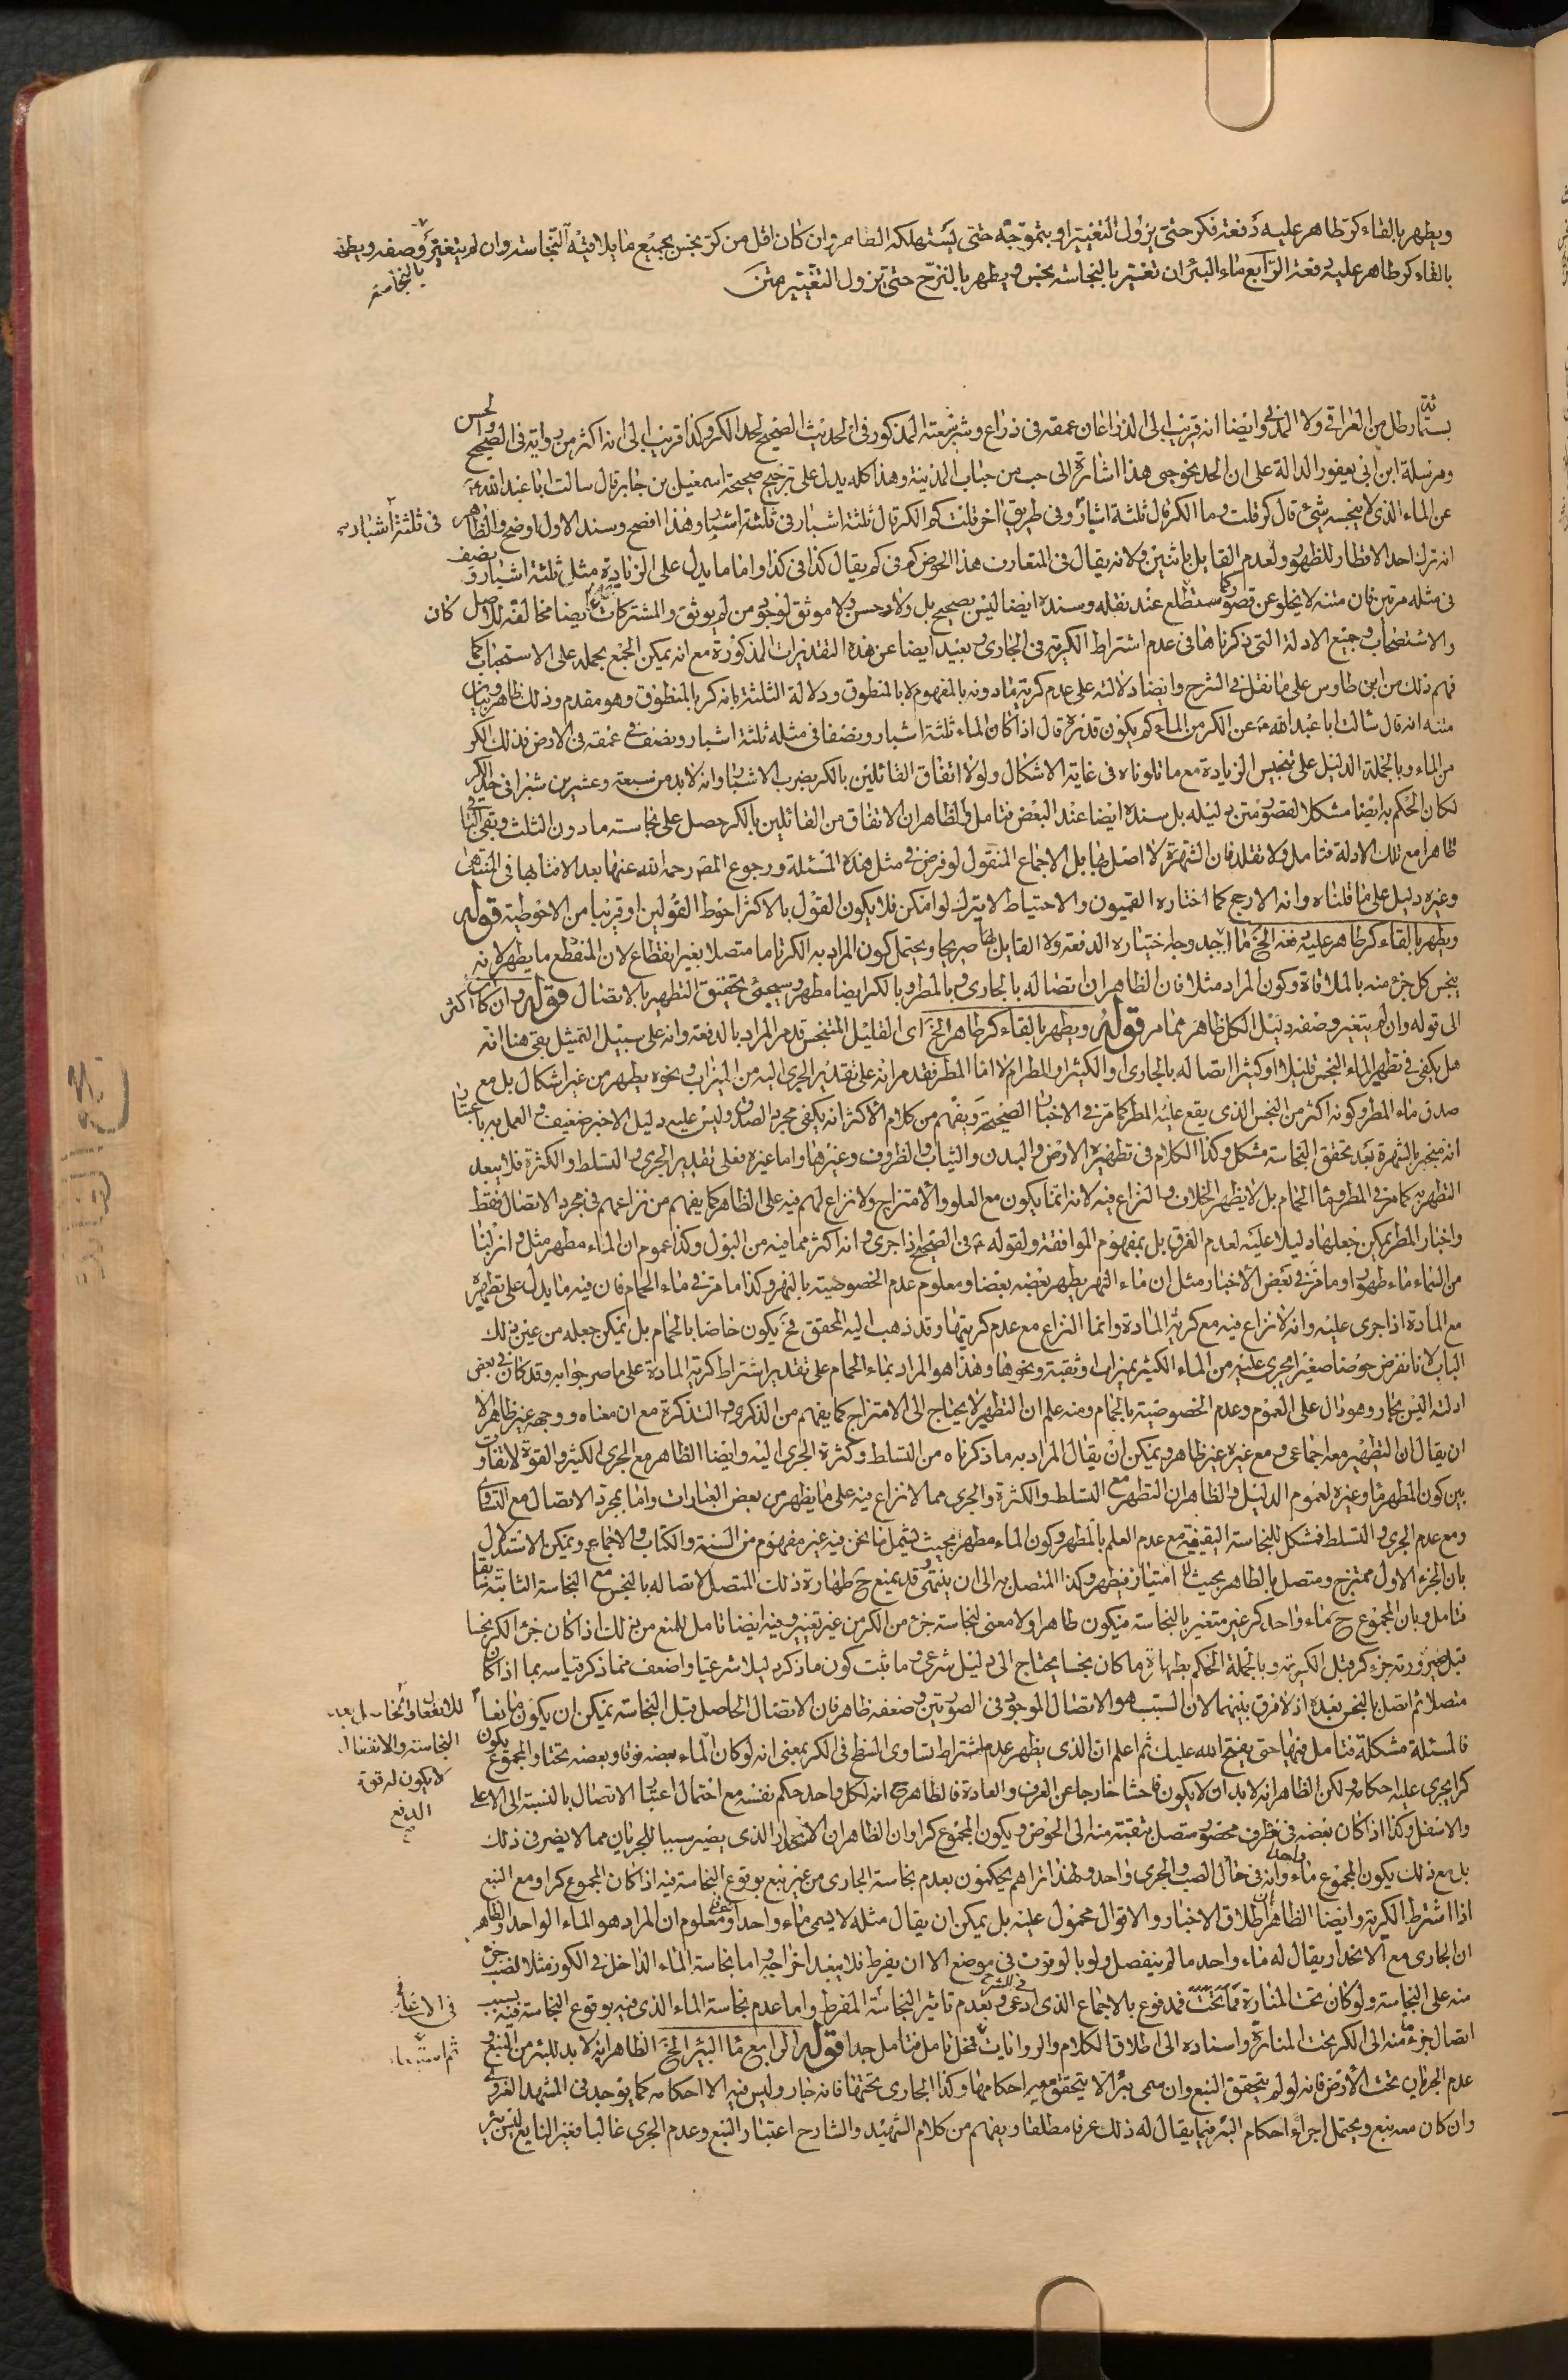 ويطهر بالقاء كر طاهر عليه دفعة فكر حتى يزول التغير او بتموجه حتى يستهلكه الطاهر وان كان اقل من كر نجس بجميع ما يلاقيه النجاسة وان لم يتغير وصفه ويطهر
بالقاء كر طاهر عليه دفعة الرابع ماء البئر ان تغير بالنجاسة نجس ويطهر بالنزح حتى يزول التغير متن
بالنجاسة
بستمائة رطل من العراقي ولا المدني وايضا انه قريب الى الذراعان عمقه فى ذراع وشبر سعته المذكور فى الحديث الصحيح لحد الكر وكذا قريب الى انه اكثر من رواية فى الصحيح والحسن
ومرسلة ابن ابي يعفور الدالة على ان الحد نحو حبى هذا اشارة الى حب من حباب المدينة وهذا كله يدل على ترجيح صحيحة اسمعيل بن جابر قال سالت ابا عبد الله ع
عن الماء الذى لا ينجسه شئ قال كر قلت وما الكر قال ثلثة اشبار وفى طريق اخر قلت كم الكر قال ثلثة اشبار فى ثلثة اشبار وهذا افصح وسند الاول اوضح والظاهر
فى ثلثة اشبار
انه ترك احد الاقطار للظهور ولعدم القايل باثنين ولانه يقال فى المتعارف هذا الحوض كم فى كم يقال كذا فى كذا واما ما يدل على الزيادة مثل ثلثة اشبار ونصف
فى مثله مرتين فان متنه لا يخلو عن قصور كما ستطلع عند نقله وسنده ايضا ليس بصحيح بل ولا حسن ولا موثق لوجود من لم يوثق والمشتركات ايضا مخالفة للاصل كان
والاستصحاب وجميع الادلة التى ذكرناها فى عدم اشتراط الكرية فى الجارى وبعيد ايضا عن هذه التقديرات المذكورة مع انه يمكن الجمع بحمله على الاستحباب كما
فهم ذلك من ابن طاوس على ما نقل فى الشرح وايضا دلالته على عدم كرية ما دونه بالمفهوم لا بالمنطوق ودلالة الثلثة بانه كر بالمنطوق وهو مقدم وذلك ظاهر وبيان
متنه انه قال سالت ابا عبد الله ع عن الكر من الماء كم يكون قدره قال اذا كان الماء ثلثة اشبار ونصفا فى مثله ثلثة اشبار ونصف فى عمقه فى الارض فذلك الكر
من الماء وبالجملة الدليل على تنجيس الزيادة مع ما تلوناه فى غاية الاشكال ولولا اتفاق القائلين بالكر بضرب الاشبار وانه لا بد من سبعة وعشرين شبرا فى حد الكر
لكان الحكم به ايضا مشكلا لقصور متن دليله بل سنده ايضا عند البعض فتامل والظاهر ان الاتفاق من القائلين بالكر حصل على نجاسة ما دون الثلث وبقى الباقى
ظاهرا مع تلك الادلة فتامل ولا تقلد فان الشهرة لا اصل لها بل الاجماع المنقول لو فرض فى مثل هذه المسئلة ورجوع المصَ رحمه الله عنها بعد الافتاء بها فى المنتهى
وغيره دليل على ما قلناه وانه الارجح كما اختاره القميون والاحتياط لا يترك لو امكن فلا يكون القول بالاكثر احوط القولين او قريبا من الاحوطية قوله
ويطهر بالقاء كر طاهر عليه دفعة الخ ما اجد وجه اختياره الدفعة ولا القايل بها صريحا ويحتمل كون المراد به الكر تاما متصلا بغير انقطاع لان المنقطع ما يطهر لانه
ينجس كل جزء منه بالملاقاة وكون المراد مثلا فان الظاهر ان اتصاله بالجارى وبالمطر وبالكر ايضا مطهر وسيجئ تحقيق التطهير بالاتصال قوله وان كان اكثر
الى قوله وان لم يتغير وصفه دليل الكل ظاهر مما مر قوله ويطهر بالقاء كر طاهر الخ اى القليل المتنجس قد مر المراد بالدفعة وانه على سبيل التمثيل بقى هنا انه
هل يكفى فى تطهير الماء النجس قليلا او كثيرا اتصاله بالجارى او الكثير او المطر ام لا اما المطر فقد مر انه على تقدير الجرى اليه من الميزاب ونحوه يطهر من غير اشكال بل مع
صدق ماء المطر وكونه اكثر من النجس الذى يقع عليه المطر كما مر فى الاخبار الصحيحة ويفهم من كلام الاكثر انه يكفى مجرد الصدق وليس عليه دليل الا خبر ضعيف والعمل به باعتبار
انه منجبر بالشهرة بعد تحقق النجاسة مشكل وكذا الكلام فى تطهيره الارض والبدن والثياب والظروف وغيرها واما غيره فعلى تقدير الجرى والتسلط والكثرة فلا يبعد
التطهير به كما مر فى المطر وماء الحمام بل لا يظهر الخلاف والنزاع فيه لانه انما يكون مع العلو والامتزاج ولا نزاع لهم فيه على الظاهر كما يفهم من نزاعهم فى مجرد الاتصال فقط
واخبار المطر يمكن جعلها دليلا عليه لعدم الفرق بل بمفهوم الموافقة ولقوله ع فى الصحيح اذا جرى وانه اكثر مما فيه من البول وكذا عموم ان الماء مطهر مثل وانزلنا
من السماء ماء طهورا وما مر فى بعض الاخبار مثل ان ماء النهر يطهر بعضه بعضا ومعلوم عدم الخصوصية بالنهر وكذا ما مر فى ماء الحمام فان فيه ما يدل على تطهيره
مع المادة اذا جرى عليه وانه لا نزاع فيه مع كرية المادة وانما النزاع مع عدم كريتها وقد ذهب اليه المحقق فح يكون خاصا بالحمام بل يمكن جعله من غير ذلك
الباب لانا نفرض حوضا صغيرا يجرى عليه من الماء الكثير بميزاب او ثقبة ونحوها وهذا هو المراد بماء الحمام على تقدير اشتراط كرية المادة على ما صرحوا به وقد كان فى بعض
ادلته اليس بجار وهو دال على العموم وعدم الخصوصية بالحمام ومنه علم ان التطهير لا يحتاج الى الامتزاج كما يفهم من الذكرى والتذكرة مع ان معناه ووجهه غير ظاهر الا
ان يقال ان التطهير معه اجماعى ومع غيره غير ظاهر ويمكن ان يقال المراد به ما ذكرناه من التسلط وكثرة الجرى اليه وايضا الظاهر مع الجرى الكثير والقوة لا تفاوت
بين كون المطهر ماء وغيره لعموم الدليل والظاهر ان التطهر مع التسلط والكثرة والجرى مما لا نزاع فيه على ما يظهر من بعض العبارات واما بمجرد الاتصال مع التساوى
ومع عدم الجرى والتسلط فمشكل للنجاسة اليقينية مع عدم العلم بالمطهر وكون الماء مطهر بحيث يشمل ما نحن فيه غير مفهوم من السنة والكتاب والاجماع ويمكن الاستدلال
بان الجزء الاول ممتزج ومتصل بالطاهر بحيث لا امتياز فيطهر وكذا المتصل به الى ان ينتهى وقد يمنع ح طهارة ذلك المتصل لاتصاله بالنجس مع النجاسة الثابتة يقينا
فتامل وبان المجموع ح ماء واحد كر غير متغير بالنجاسة فيكون طاهرا ولا معنى لنجاسة جزء من الكر من غير تغير وفيه ايضا تامل للمنع من ذلك اذا كان جزء الكر نجسا
قبل صيرورته جزء كر قبل الكرية وبالجملة الحكم بطهارة ما كان نجسا يحتاج الى دليل شرعى وما ثبت كون ما ذكر دليلا شرعيا واضعف مما ذكر قياسه بما اذا كان
متصلا ثم اتصل بالنجس بعده اذ لا فرق بينهما لان السبب هو الاتصال الموجود فى الصورتين وضعفه ظاهر فان الاتصال الحاصل قبل النجاسة يمكن ان يكون مانعا
فالمسئلة مشكلة فتامل فيها حتى يفتح الله عليك ثم اعلم ان الذى يظهر عدم اشتراط تساوى السطح فى الكر بمعنى انه لو كان الماء بعضه فوقا وبعضه تحتا والمجموع يكون
النجاسة والانفعال
لا يكون له قوة
الدفع
كرا يجرى عليه احكامه ولكن الظاهر انه لا بد ان لا يكون فاحشا خارجا عن العرف والعادة فالظاهر ح انه لكل واحد حكم نفسه مع احتمال اعتبار الاتصال بالنسبة الى الاعلى
والاسفل وكذا اذا كان بعضه فى ظرف مخصوص متصل بثقبة منه الى الحوض ويكون المجموع كرا وان الظاهر ان الانحدار الذى يصير سببا للجريان مما لا يضر فى ذلك
بل مع ذلك يكون المجموع ماء واحدا وانه فى حال الصب والجرى واحد ولهذا تراهم يحكمون بعدم نجاسة الجارى من غير نبع بوقوع النجاسة فيه اذا كان المجموع كرا ومع النبع
اذا اشترط الكرية وايضا الظاهر ان اطلاق الاخبار والاقوال محمول عليه بل يمكن ان يقال مثله لا يسمى ماء واحدا عرفا ومعلوم ان المراد هو الماء الواحد والظاهر
ان الجارى مع الانحدار يقال له ماء واحد ما لم ينفصل ولو بالوقوف فى موضع الا ان يفرط فلا يبعد اخراجه واما نجاسة الماء الداخل فى الكوز مثلا لصب جزء
منه على النجاسة ولو كان تحت المنارة فما تحت فمدفوع بالاجماع الذى ادعى فى الشرح وبعدم تاثير النجاسة المفرط واما عدم نجاسة الماء الذى فيه بوقوع النجاسة فيه بسبب
اتصال جزء ما منه الى الكر تحت المنارة واسناده الى اطلاق الكلام والروايات فمحل تامل فتامل جدا قوله الرابع ماء البئر الخ الظاهر انه لا بد للبئر من النبع و
عدم الجريان تحت الارض فانه لو لم يتحقق النبع وان سمى بئرا لا يتحقق معه احكامها وكذا الجارى تحتها فانه جار وليس فيه الا احكامه كما يوجد فى المشهد الغروى
وان كان معه نبع ويحتمل اجراء احكام البئر فيما يقال له ذلك عرفا مطلقا ويفهم من كلام الشهيد والشارح اعتبار النبع وعدم الجرى غالبا فغير النابع ليس ببئر